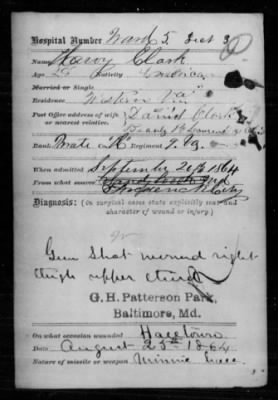 Hospital Number Ward 5, Bed 3
Name Harvy Clark
Age 25 Nativity America
Married or Single
Residence Western Va
Post Office address of wife or nearest relative. David Clark
Rank Private "K" Regiment 9. Va.
When admitted September 20th 1864
From what source Frederick City
Diagnosis: (In surgical cases state explicitly seat and character of wound or injury.)
Gun Shot wound right
thigh upper third
G. H. Patterson Park,
Baltimore, Md.
On what occasion wounded Halltown
Date August 25th 1864
Nature of missile or weapon Minnie Ball